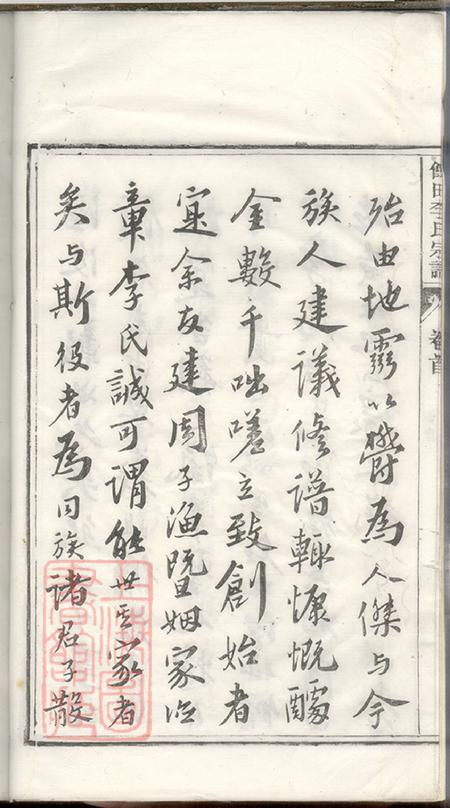 李氏宗譜
卷首
殆由地靈以鬱為人傑与今
族人建議修譜輒慷慨醵
金數千咄嗟立致創始者
寔余友建周子漁暨姻家
章李氏誠可謂能世其家者
矣与斯役者為同族諸君子散